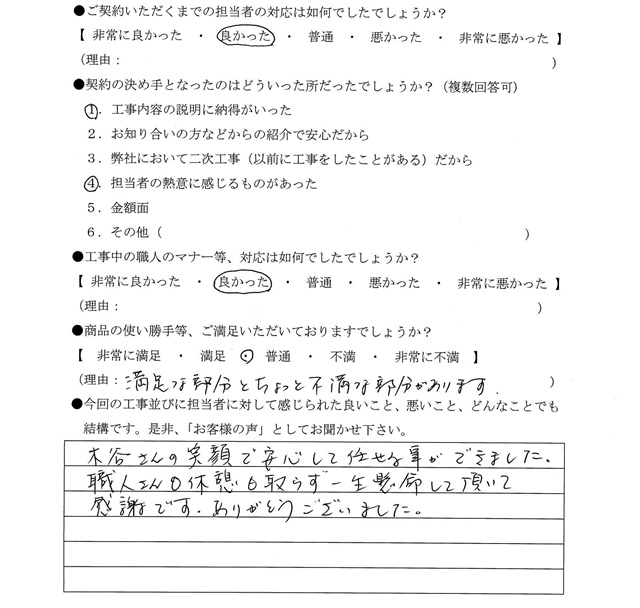 ●ご契約いただくまでの担当者の対応は如何でしたでしょうか？
【 非常に良かった ・ 良かった ・ 普通 ・ 悪かった ・ 非常に悪かった 】
（理由： ）
●契約の決め手となったのはどういった所だったでしょうか？（複数回答可）
１．工事内容の説明に納得がいった
２．お知り合いの方などからの紹介で安心だから
３．弊社において二次工事（以前に工事をしたことがある）だから
４．担当者の熱意に感じるものがあった
５．金額面
６．その他（ ）
●工事中の職人のマナー等、対応は如何でしたでしょうか？
【 非常に良かった ・ 良かった ・ 普通 ・ 悪かった ・ 非常に悪かった 】
（理由： ）
●商品の使い勝手等、ご満足いただいておりますでしょうか？
【 非常に満足 ・ 満足 ・ 普通 ・ 不満 ・ 非常に不満 】
（理由：満足な部分とちょっと不満な部分があります． ）
●今回の工事並びに担当者に対して感じられた良いこと、悪いこと、どんなことでも
結構です。是非、「お客様の声」としてお聞かせ下さい。
木谷さんの笑顔で安心して任せる事ができました、
職人さんも休憩も取らず一生懸命して頂いて
感謝です．ありがとうございました。